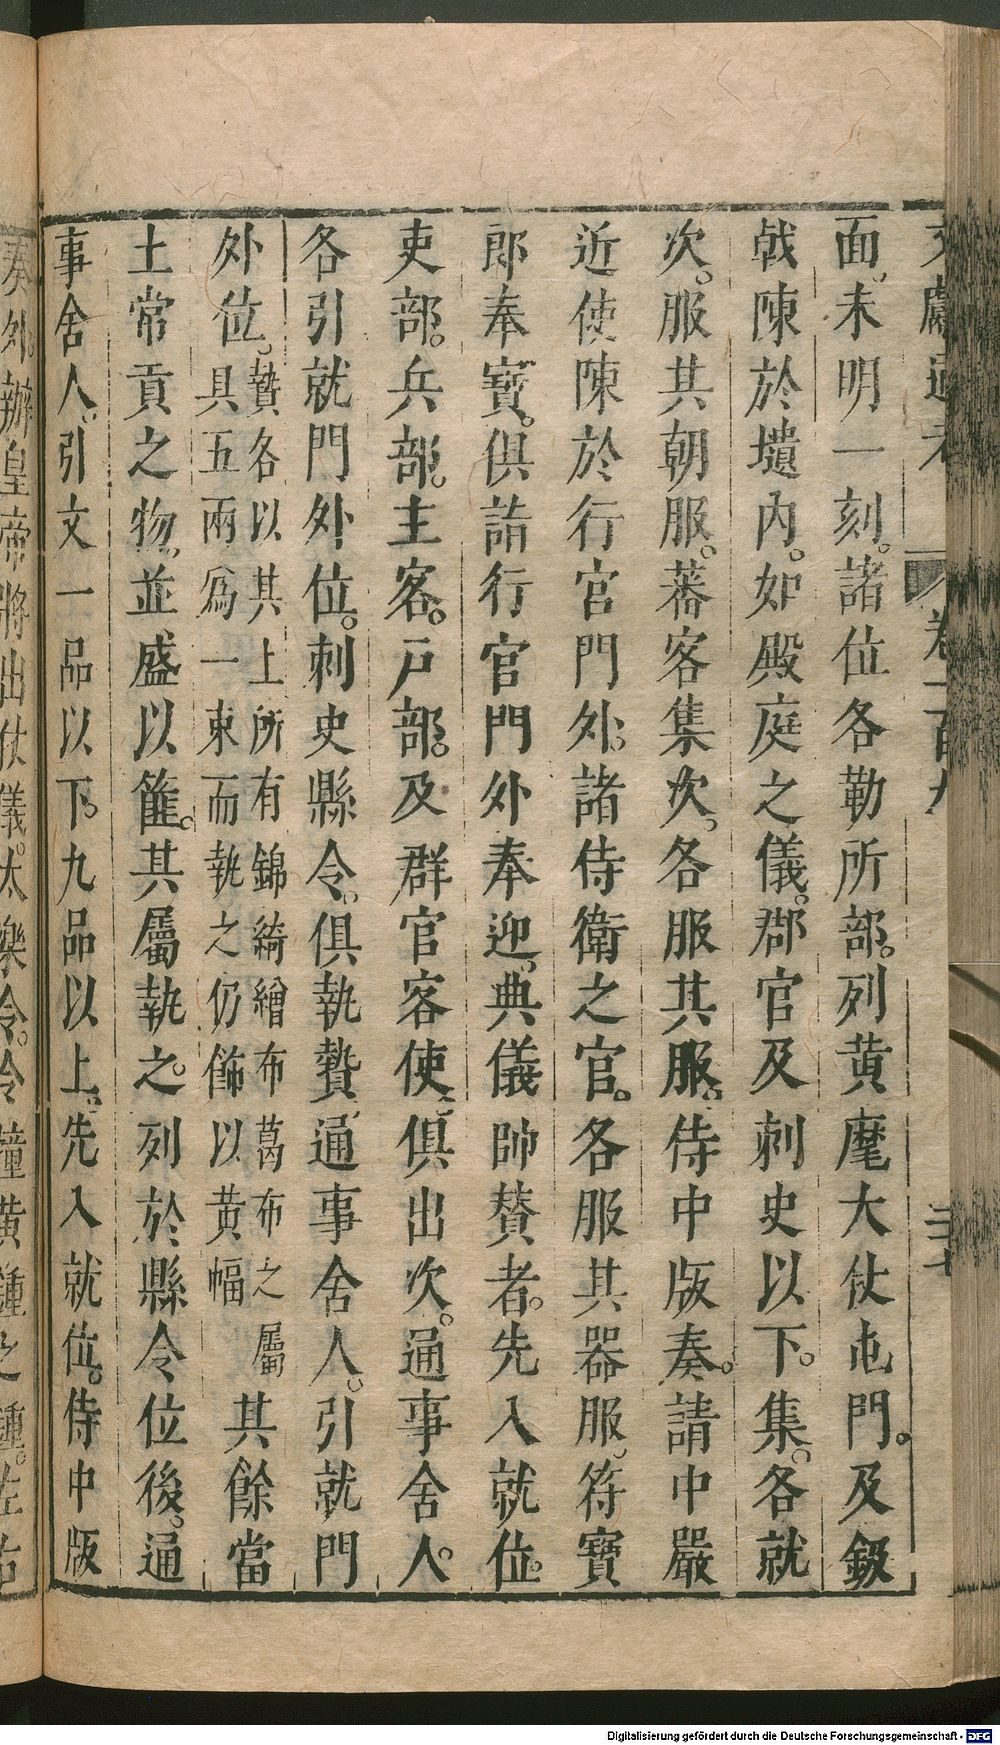 面。未明一刻。諸位各勒所部。列黄麾大仗屯門。及鈒
戟陳於壝内。如殿庭之儀。郡官及刺史以下。集。各就
次。服其朝服。蕃客集次。各服其服。侍中版奏。請中嚴
近使陳於行官門外。諸侍衛之官。各服其器服。符寶
郎奉寶。俱詣行官門外奉迎。典儀帥賛者。先入就位。
吏部。兵部。主客。戸部。及群官客使。俱出次。通事舍人。
各引就門外位。刺史縣令。俱執贄。通事舍人。引就門
外位。贄各以其上所有錦綺繒布葛布之屬
具五兩爲一束而執之仍飾以黄幅其餘當
土常貢之物。並盛以篚。其屬執之。列於縣令位後。通
事舍人。引文一品以下。九品以上。先入就位。侍中版
奏外。辦皇帝將出仗儀。太樂令。令撞黄鍾之鍾。左右
卷一百九
三十七
Digitalisierung gefördert durch die Deutsche Forschungsgemeinschaft - DFG